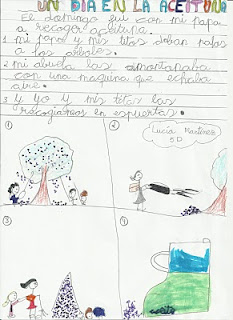 UN DIA EN LA ACEITUNA
El domingo fui con mi papa
a recoger aceituna.
1 mi papa y mis titos daban palos
a los arboles.
2 mi abuela las amontanaba
con una maquina que echaba
aire.
3 y yo y mis titas las
recogiamos en espuertas.
1
2
Lucía Martínez
5D
3
4